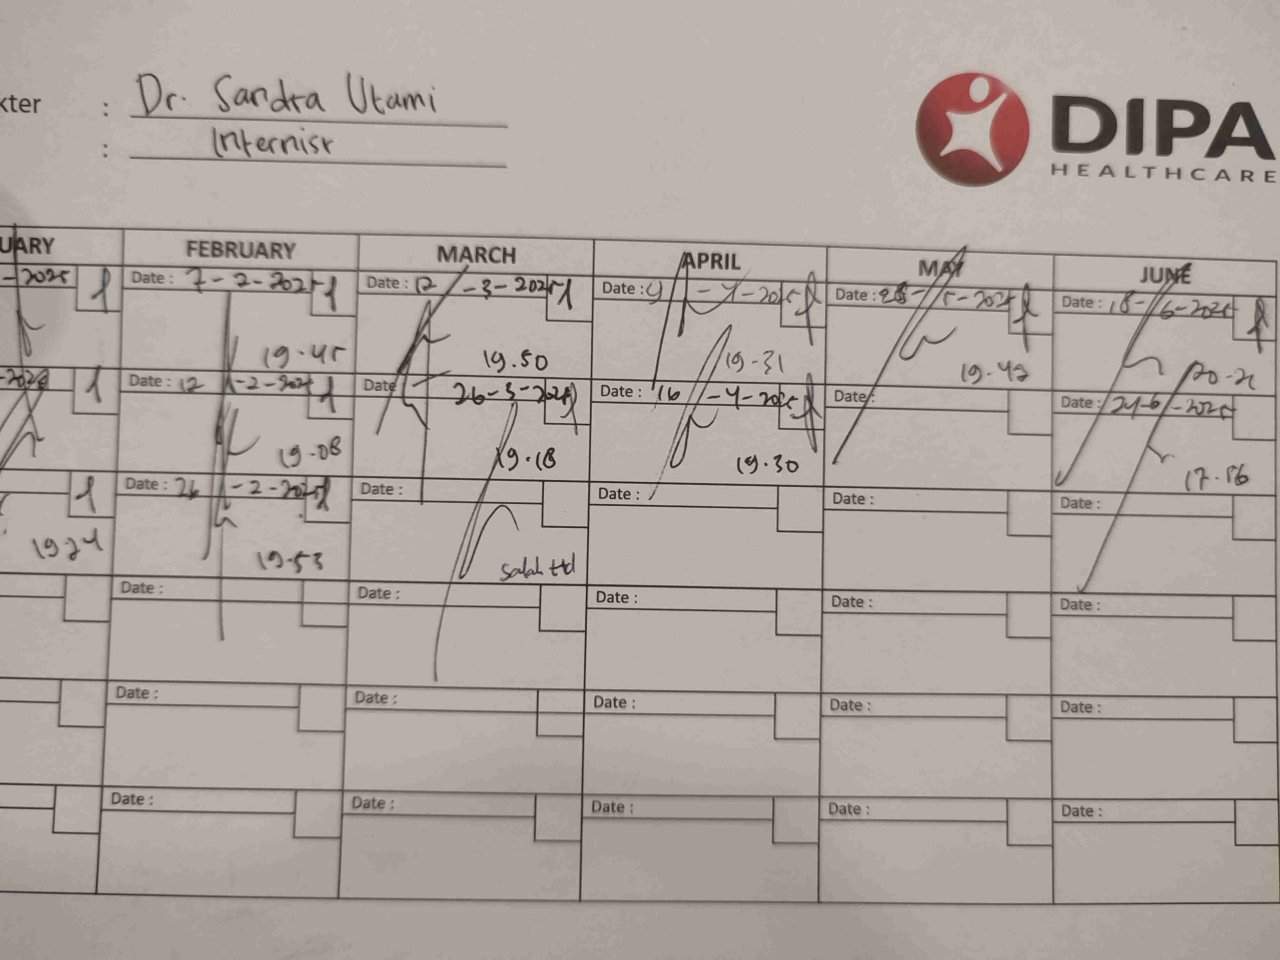 kter : Dr. Sandra Utami
: Internist
DIPA
HEALTHCARE
UARY FEBRUARY MARCH APRIL MAY JUNE
-2025 Date : 7-2-2025 Date : 12 -3-2025 Date : 9 -4-2025 Date : 28-5-2025 Date : 18-6-2025
19.45 19.50 19-31 19-42 20-21
Date : 12 -2-2025 Date 26-3-2025 Date : 16 -4-2025 Date : Date : 24-6-2025
19.08 19.18 19.30 17.56
Date : 26 -2-2025 Date : Date : Date : Date :
1924 19.53 Salah ttd
Date : Date : Date : Date : Date :
Date : Date : Date : Date : Date :
Date : Date : Date : Date : Date :